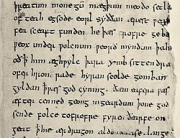 þreatum monegū mægþum meodo setla
of teah egsode eorl syððan ærest wearð
fea sceaft funden he þæs frofre gebad
weox under wolcnum weorð myndum þah
oð þ him æghwylc þara ymb sittendra
ofer hron rade hyran scolde gomban
gyldan þ wæs god cyning. ðæm eafera wæs
æfter cenned geong in geardum þone god
sende folce tofrofre fyren ðearfe on
geat þ hie ær drugon aldor ase. lange